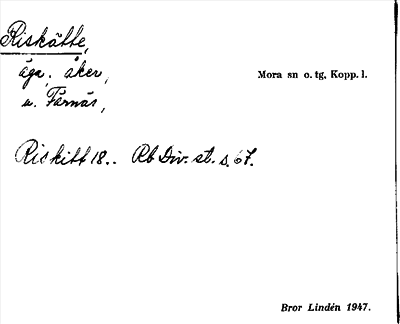 Riskätte,
äga, åker,
u. Färnäs,
Mora sn o. tg, Kopp. l.
Riskitt 18.. Rb Div. st. s. 67.
Bror Lindén 1947.